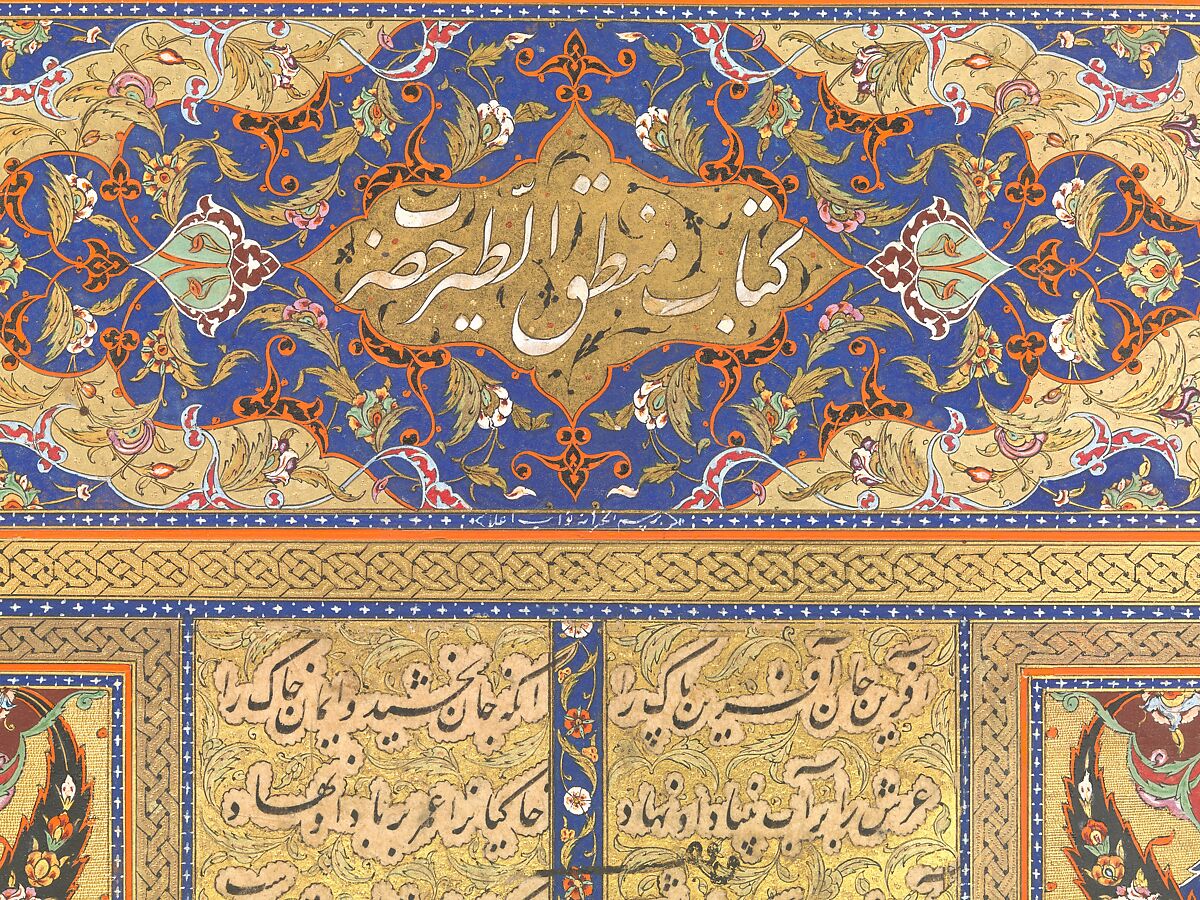 کتاب منطق الطیر حضرت
برسم الخزانه نواب اعلا
آفرین جان آفرین پاک را
آنکه جان بخشید و ایمان خاک را
عرش را بر آب بنیاد او نهاد
خاکیانرا عمر بر باد او نهاد